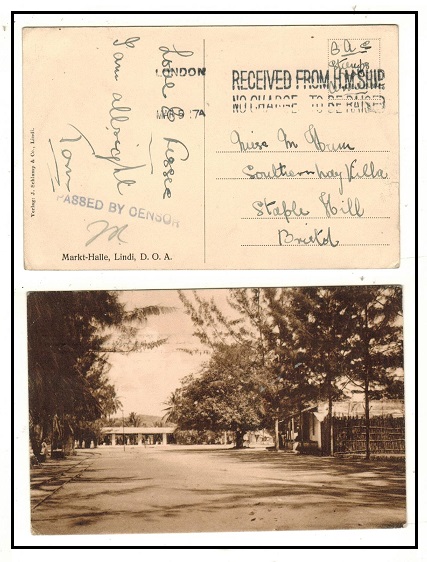 B.A.S
Stamps
LONDON
MAR 9 17A
RECEIVED FROM H.M.SHIP
NO CHARGE TO BE RAISED
Love to Jessie
I am allright
Tom
Miss M Hum
Southernhay Villa
Staple Hill
Bristol
PASSED BY CENSOR
Markt-Halle, Lindi, D. O. A.
Verlag: J. Schlamp & Co., Lindi.